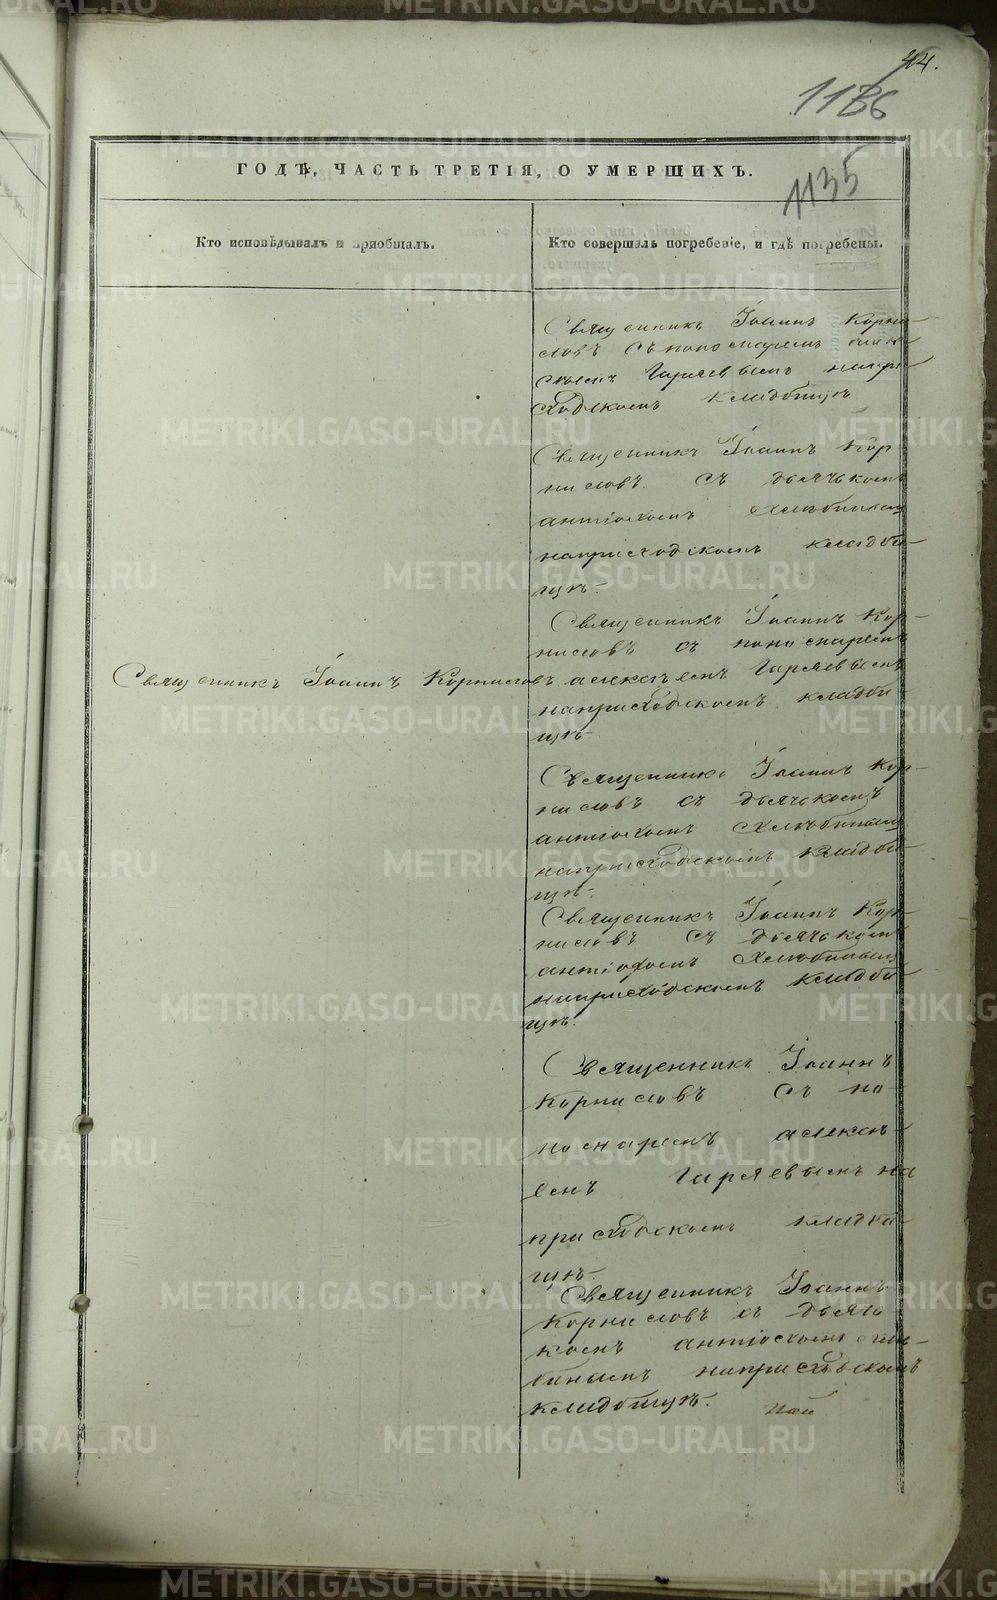 44.
1186
1135
ГОДѢ, ЧАСТЬ ТРЕТІЯ, О УМЕРШИХЪ.
Кто исповѣдывалъ и пріобщалъ.
Кто совершалъ погребеніе, и гдѣ погребены.
Священникъ Іоаннъ Корни-
ловъ съ пономаремъ Алек-
сѣемъ Гаряевымъ на при-
ходскомъ кладбищѣ
Священникъ Іоаннъ Кор-
ниловъ съ дьячкомъ
Антіохомъ Хлѣбинымъ
на приходскомъ кладби-
щѣ.
Священникъ Іоаннъ Кор-
ниловъ съ пономаремъ
Священникъ Іоаннъ Корниловъ
Алексѣемъ Гаряевымъ
на приходскомъ кладби-
щѣ
Священникъ Іоаннъ Кор-
ниловъ съ дьячкомъ
Антіохомъ Хлѣбинымъ
на приходскомъ кладби-
щѣ.
Священникъ Іоаннъ Кор-
ниловъ съ дьячкомъ
Антіохомъ Хлѣбинымъ
на приходскомъ кладби-
щѣ.
Священникъ Іоаннъ
Корниловъ съ по-
номаремъ Алексѣ-
емъ Гаряевымъ на
приходскомъ кладби-
щѣ.
Священникъ Іоаннъ
Корниловъ съ дьяч-
комъ Антіохомъ Хлѣ-
бинымъ на приходскомъ
кладбищѣ.
METRIKI.GASO-URAL.RU